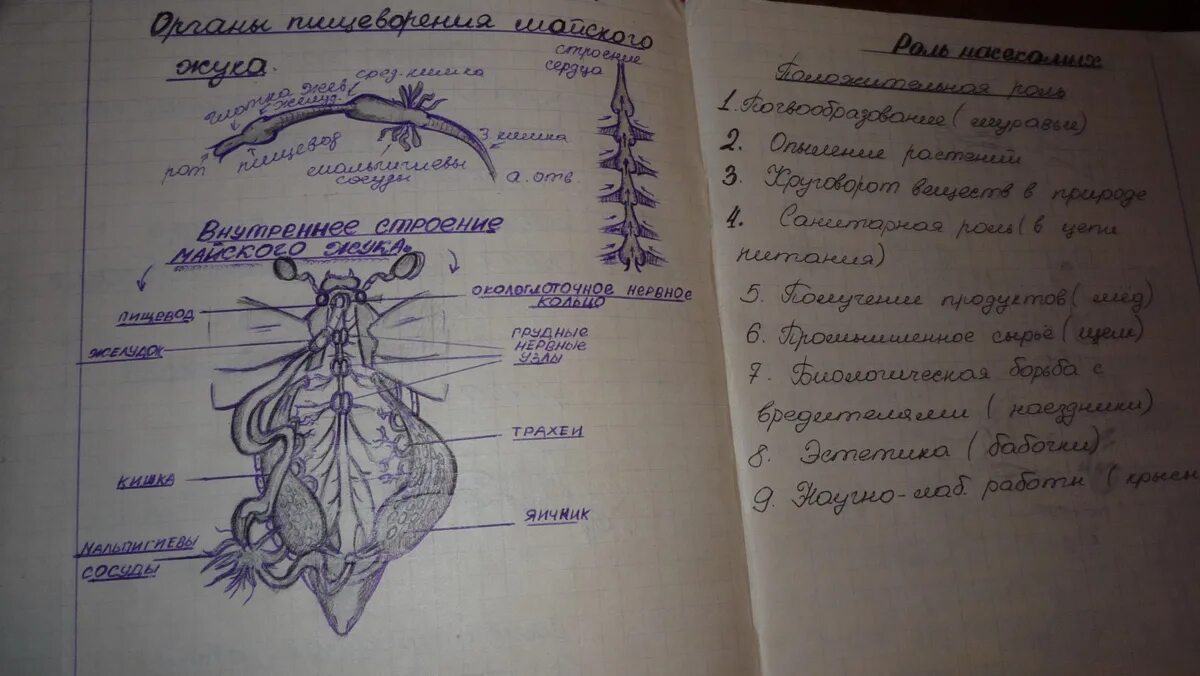 Органы пищеворения майского
жука.
строение
сердца
сред. кишка
глотка жев
желуд.
рот
пищевод
мальпигиевы
сосуды
З. кишка
а. отв.
Внутреннее строение
майского жука.
пищевод
желудок
кишка
мальпигиевы
сосуды
окологлоточное нервное
кольцо
грудные
нервные
узлы
трахеи
яичник
Роль насекомых
Положительная роль
1. Почвообразование (муравьи)
2. Опыление растений
3. Круговорот веществ в природе
4. Санитарная роль (в цепи
питания)
5. Получение продуктов (мёд)
6. Промышленное сырьё (щелк)
7. Биологическая борьба с
вредителями (наездники)
8. Эстетика (бабочки)
9. Научно-лаб. работы (